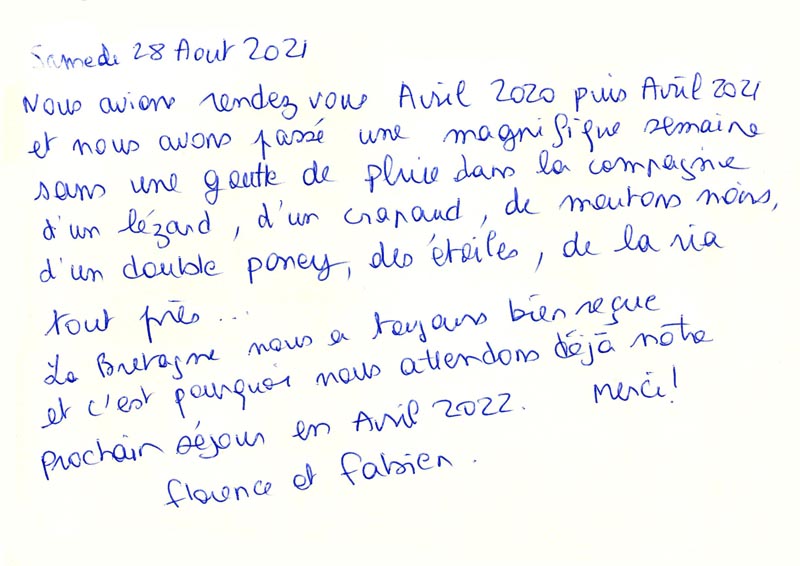 Samedi 28 Aout 2021
Nous avions rendez vous Avril 2020 puis Avril 2021
et nous avons passé une magnifique semaine
sans une goutte de pluie dans la compagnie
d'un lézard, d'un crapaud, de moutons noirs,
d'un double poney, des étoiles, de la ria
tout près...
La Bretagne nous a toujours bien reçue
et c'est pourquoi nous attendons déjà nôtre
prochain séjour en Avril 2022. Merci!
florence et fabien.